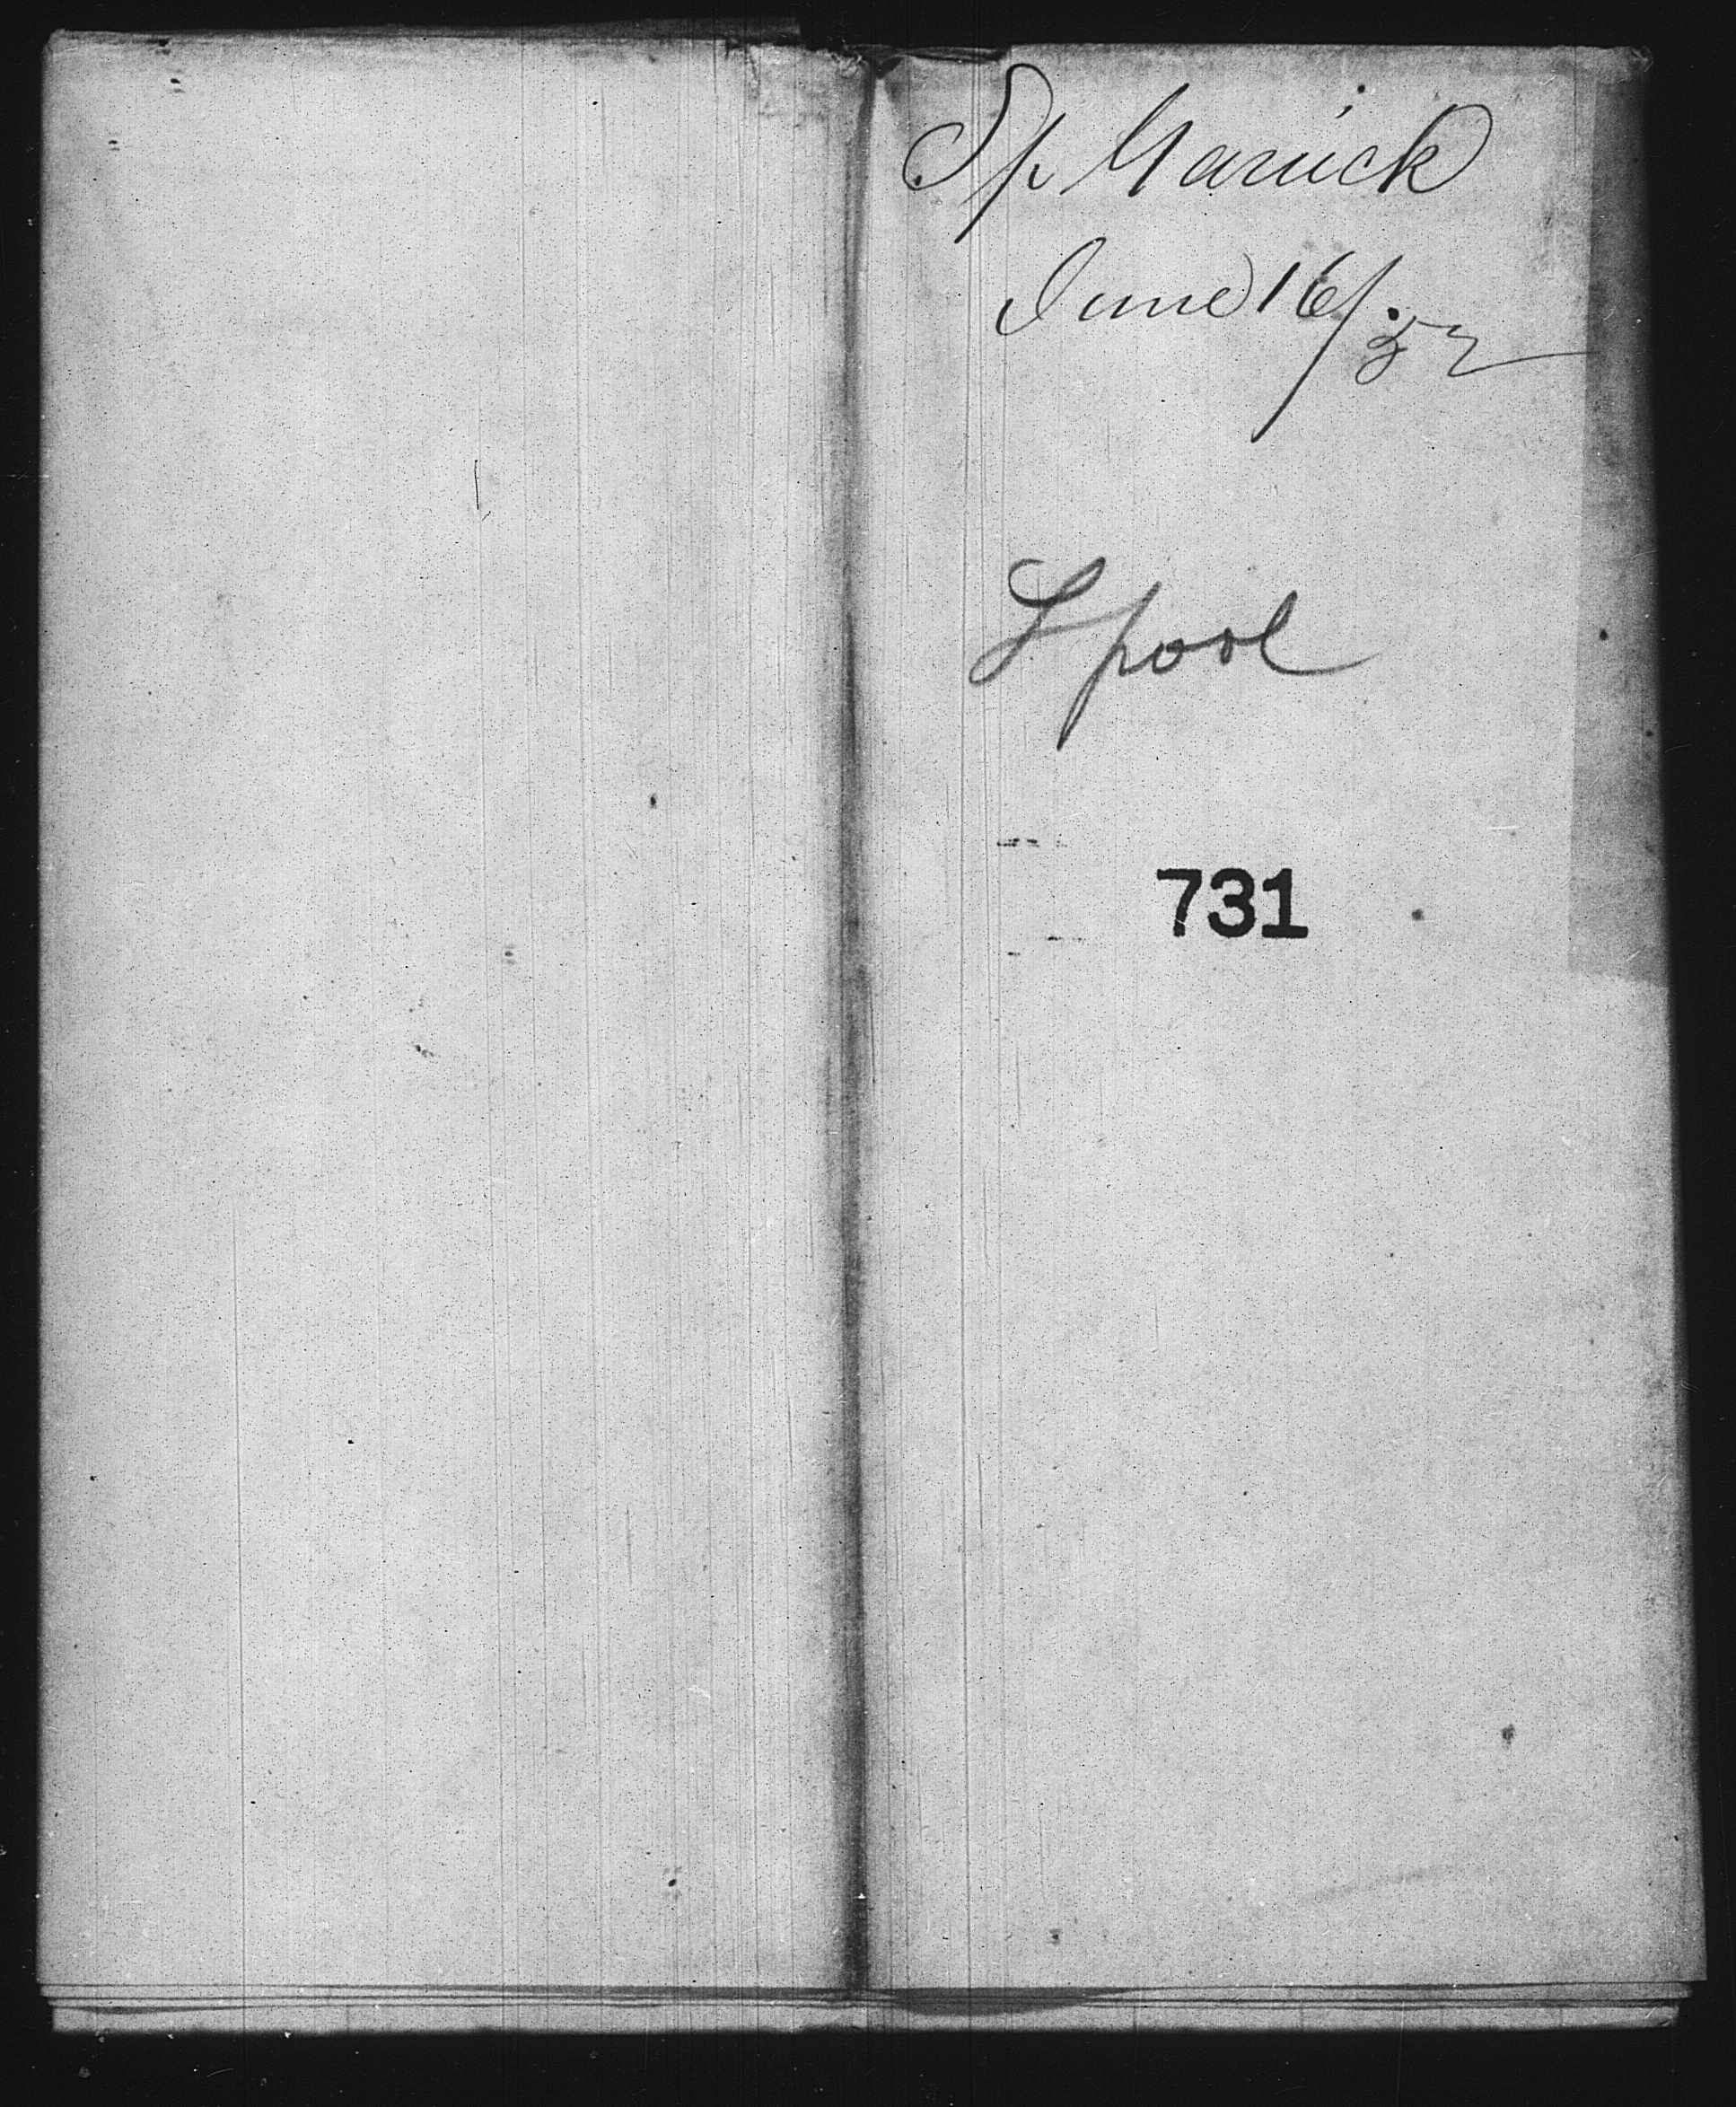 Sp Garrick
June 16/52
Lpool
731